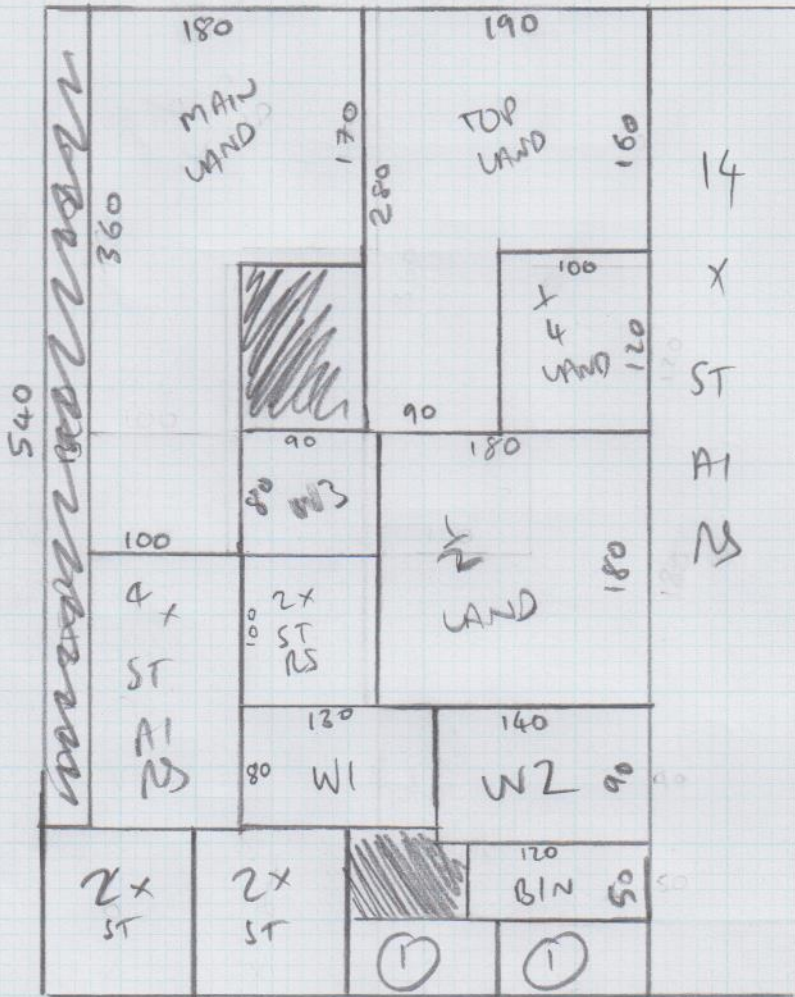 180
MAIN
LAND
170
360
190
TOP
LAND
160
280
100
X
4
LAND
120
90
14
X
ST
AI
RS
540
90
80 W3
180
LAND
180
100
4 X
ST
AI
RS
100
2X
ST
RS
130
80 W1
140
W2 90
2X
ST
2X
ST
120
BIN 50
1
1